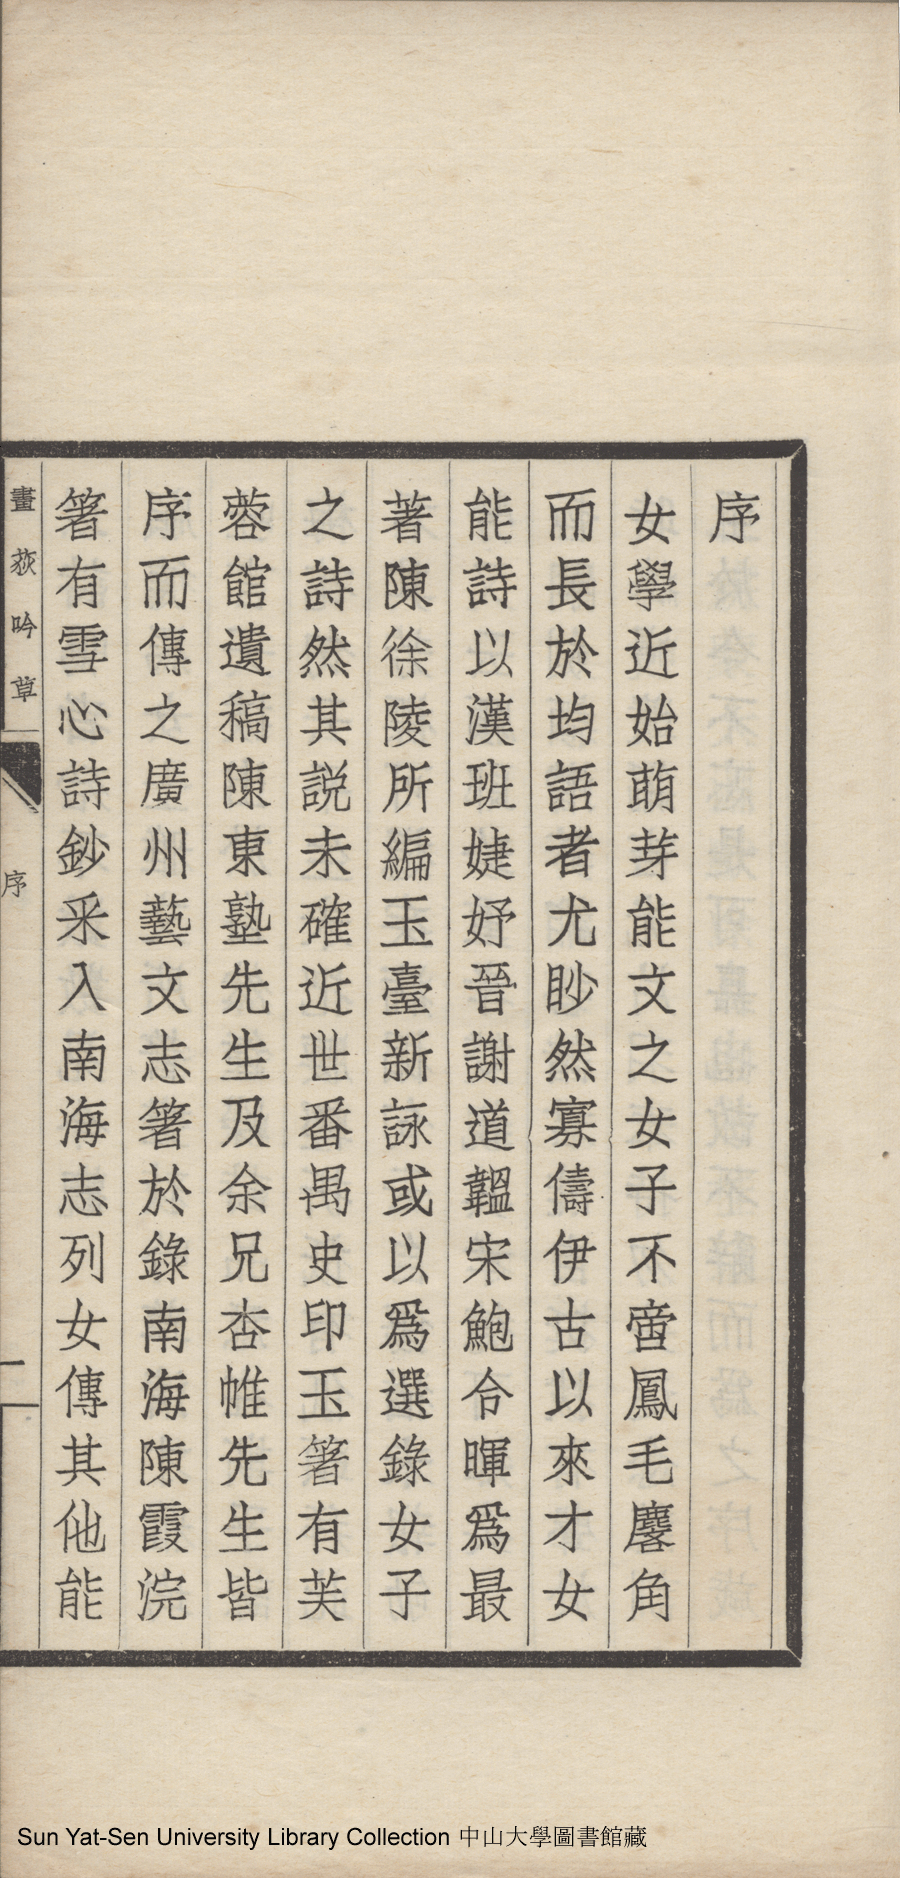 序
女學近始萌芽能文之女子不啻鳳毛麐角
而長於均語者尤眇然寡儔伊古以來才女
能詩以漢班婕妤晉謝道韞宋鮑令暉爲最
著陳徐陵所編玉臺新詠或以爲選錄女子
之詩然其説未確近世番禺史印玉箸有芙
蓉館遺稿陳東塾先生及余兄杏帷先生皆
序而傳之廣州藝文志箸於錄南海陳霞浣
箸有雪心詩鈔采入南海志列女傳其他能
畫荻吟草
序
一
Sun Yat-Sen University Library Collection 中山大學圖書館藏